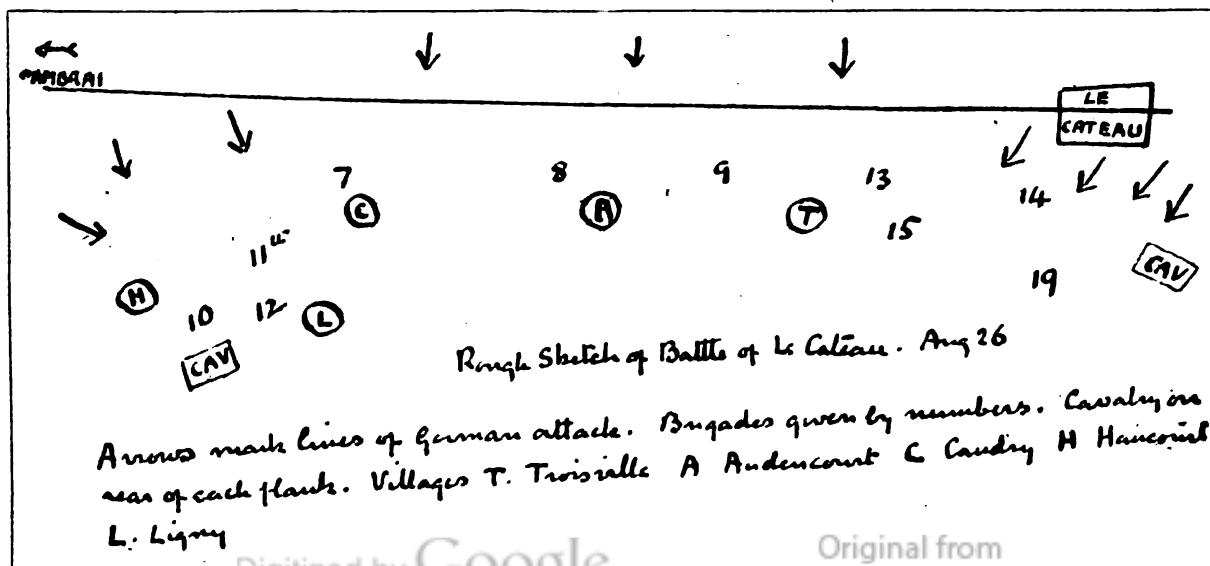 CAMBRAI
LE
CATEAU
7
8
9
13
14
C
A
T
15
11th
H
10
12
L
19
CAV
CAV
Rough Sketch of Battle of Le Cateau. Aug 26
Arrows mark lines of German attack. Brigades given by numbers. Cavalry in
rear of each flank. Villages T. Troisville A Audencourt C Caudry H Haucourt
L. Ligny
Digitized by Google
Original from